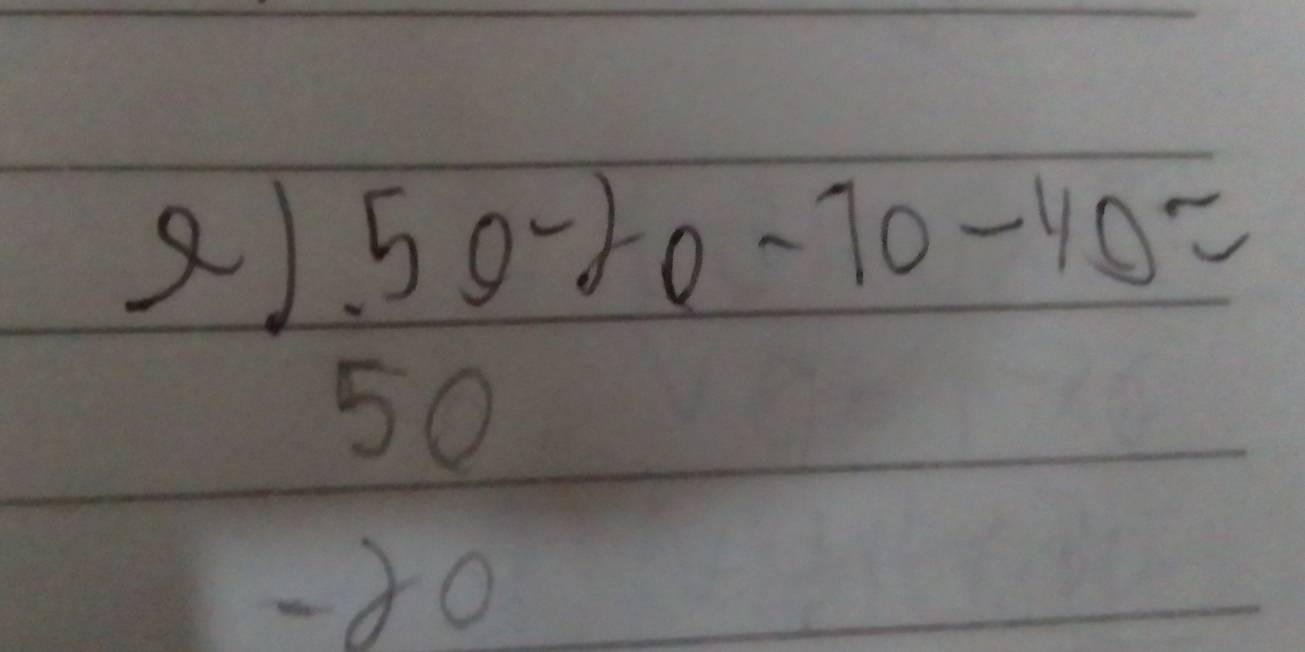 e) .50-20-10-40=
50
-20